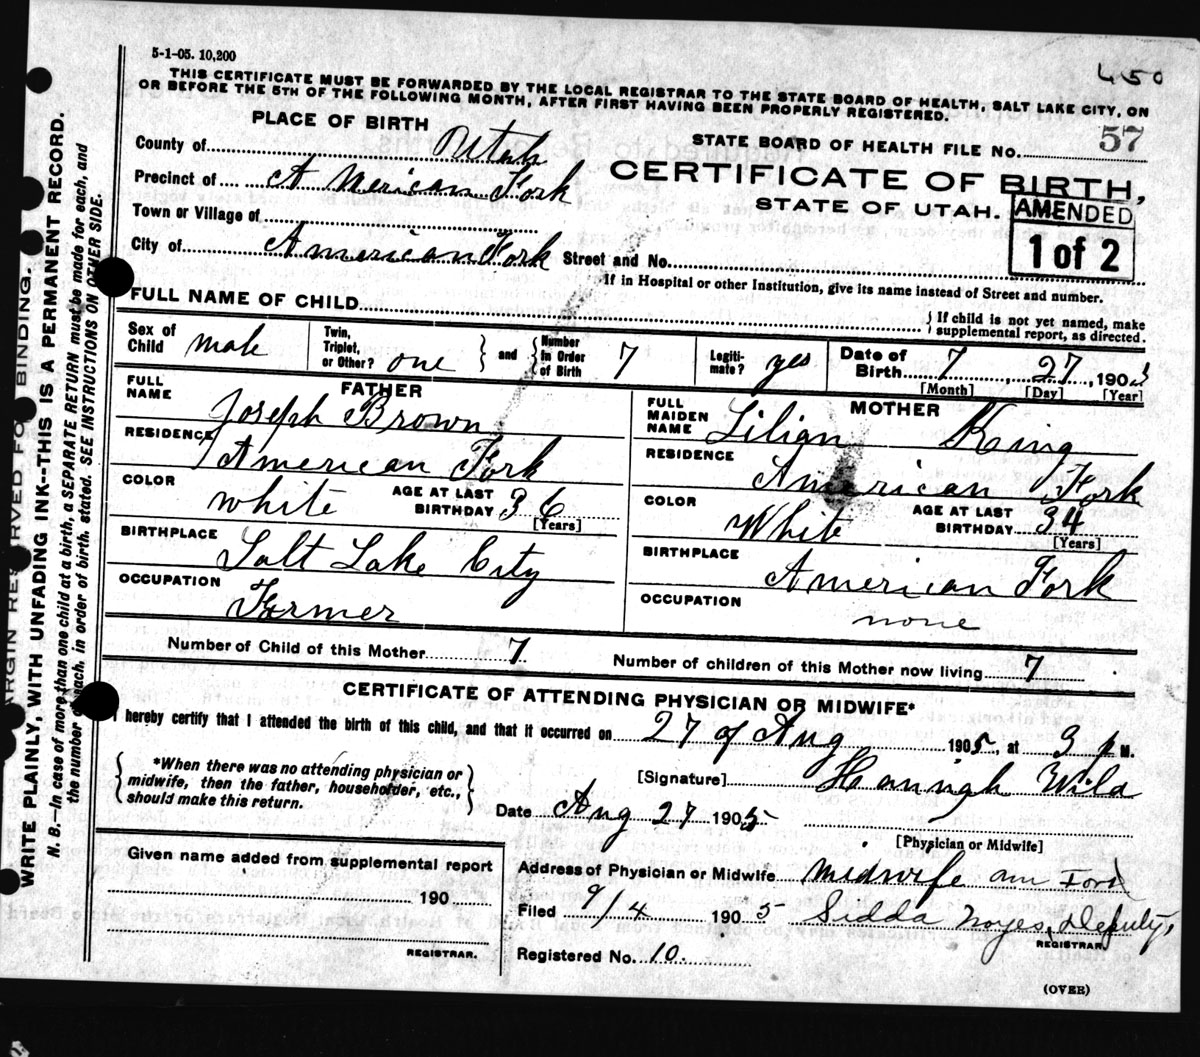 5-1-05. 10,200
450
THIS CERTIFICATE MUST BE FORWARDED BY THE LOCAL REGISTRAR TO THE STATE BOARD OF HEALTH, SALT LAKE CITY, ON
OR BEFORE THE 5TH OF THE FOLLOWING MONTH, AFTER FIRST HAVING BEEN PROPERLY REGISTERED.
PLACE OF BIRTH
STATE BOARD OF HEALTH FILE No. 57
County of Utah
CERTIFICATE OF BIRTH,
Precinct of A Merican Fork
STATE OF UTAH.
AMENDED
1 of 2
Town or Village of
City of American Fork Street and No.
If in Hospital or other Institution, give its name instead of Street and number.
FULL NAME OF CHILD
If child is not yet named, make
supplemental report, as directed.
Sex of Child male Twin, Triplet, or Other? one and Number in Order of Birth 7 Legitimate? yes Date of Birth 7, 27, 190
[Month] [Day] [Year]
FATHER
MOTHER
FULL NAME Joseph Brown
FULL MAIDEN NAME Lilian King
RESIDENCE American Fork
RESIDENCE American Fork
COLOR white AGE AT LAST BIRTHDAY 36 [Years]
COLOR White AGE AT LAST BIRTHDAY 34 [Years]
BIRTHPLACE Salt Lake City
BIRTHPLACE American Fork
OCCUPATION Farmer
OCCUPATION none
Number of Child of this Mother 7
Number of children of this Mother now living 7
CERTIFICATE OF ATTENDING PHYSICIAN OR MIDWIFE*
I hereby certify that I attended the birth of this child, and that it occurred on 27 of Aug 1905, at 3 p M.
*When there was no attending physician or
midwife, then the father, householder, etc.,
should make this return.
[Signature] Hannah Wild
Date Aug 27 1905
[Physician or Midwife]
Given name added from supplemental report
190
REGISTRAR.
Address of Physician or Midwife Midwife am Fork
Filed 9/4 1905 Sidda Noyes, Deputy,
REGISTRAR.
Registered No. 10.
(OVER)
MARGIN RESERVED FOR BINDING.
WRITE PLAINLY, WITH UNFADING INK--THIS IS A PERMANENT RECORD.
N. B.—In case of more than one child at a birth, a SEPARATE RETURN must be made for each, and
the number of each, in order of birth, stated. SEE INSTRUCTIONS ON OTHER SIDE.